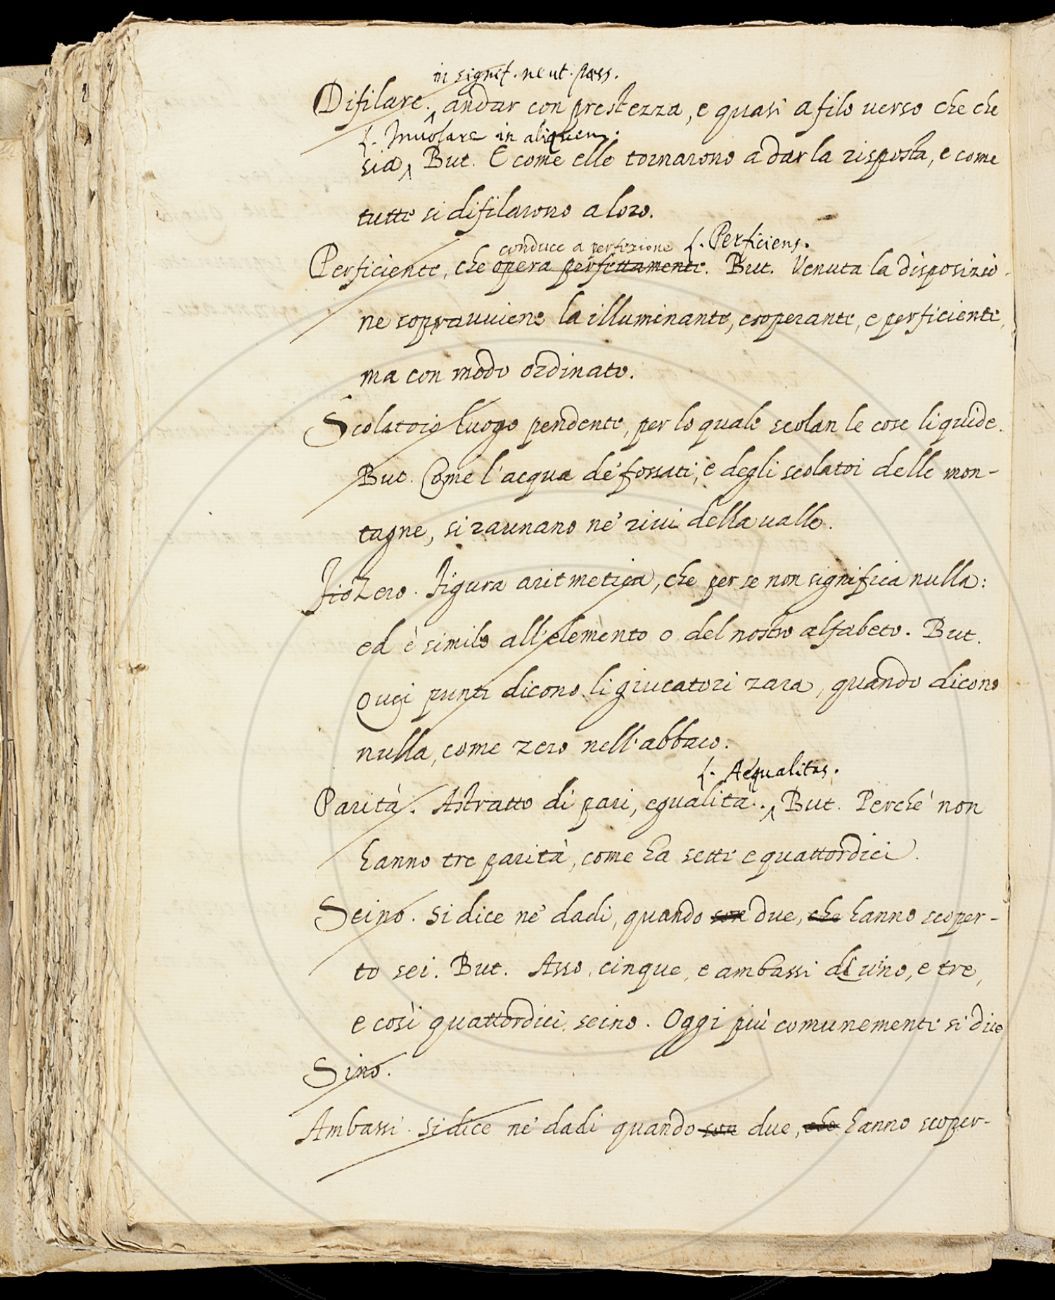 in signif. neut. pass.
Difilare. andar con prestezza, e quasi a filo verso che che
L. Involare in aliquem.
sia, But. E come elle tornarono a dar la risposta, e come
tutte si difilarono a loro.
conduce a perfezione L. Perficiens.
Perficiente, che opera perfettamente. But. Venuta la disposizio-
ne sopravviene la illuminante, cooperante, e perficiente,
ma con modo ordinato.
Scolatoio luogo pendente, per lo quale scolan le cose liquide.
But. Come l'acqua de' fossati, e degli scolatoi delle mon-
tagne, si raunano ne' rivi della valle.
Zero. Figura aritmetica, che per se non significa nulla:
ed è simile all'elemento o del nostro alfabeto. But.
Quei punti dicono li giucatori zara, quando dicono
nulla, come zero nell'abbaco.
L. Aequalitas.
Parità. Astratto di pari, egualità. But. Perchè non
hanno tre parità, come ha sette e quattordici.
Seino. Si dice ne' dadi, quando son due, che hanno scoper-
to sei. But. Asso, cinque, e ambassi di uno, e tre,
e così quattordici seino. Oggi più comunemente si dice
Sino.
Ambassi. si dice ne' dadi quando son due, che hanno scoper-